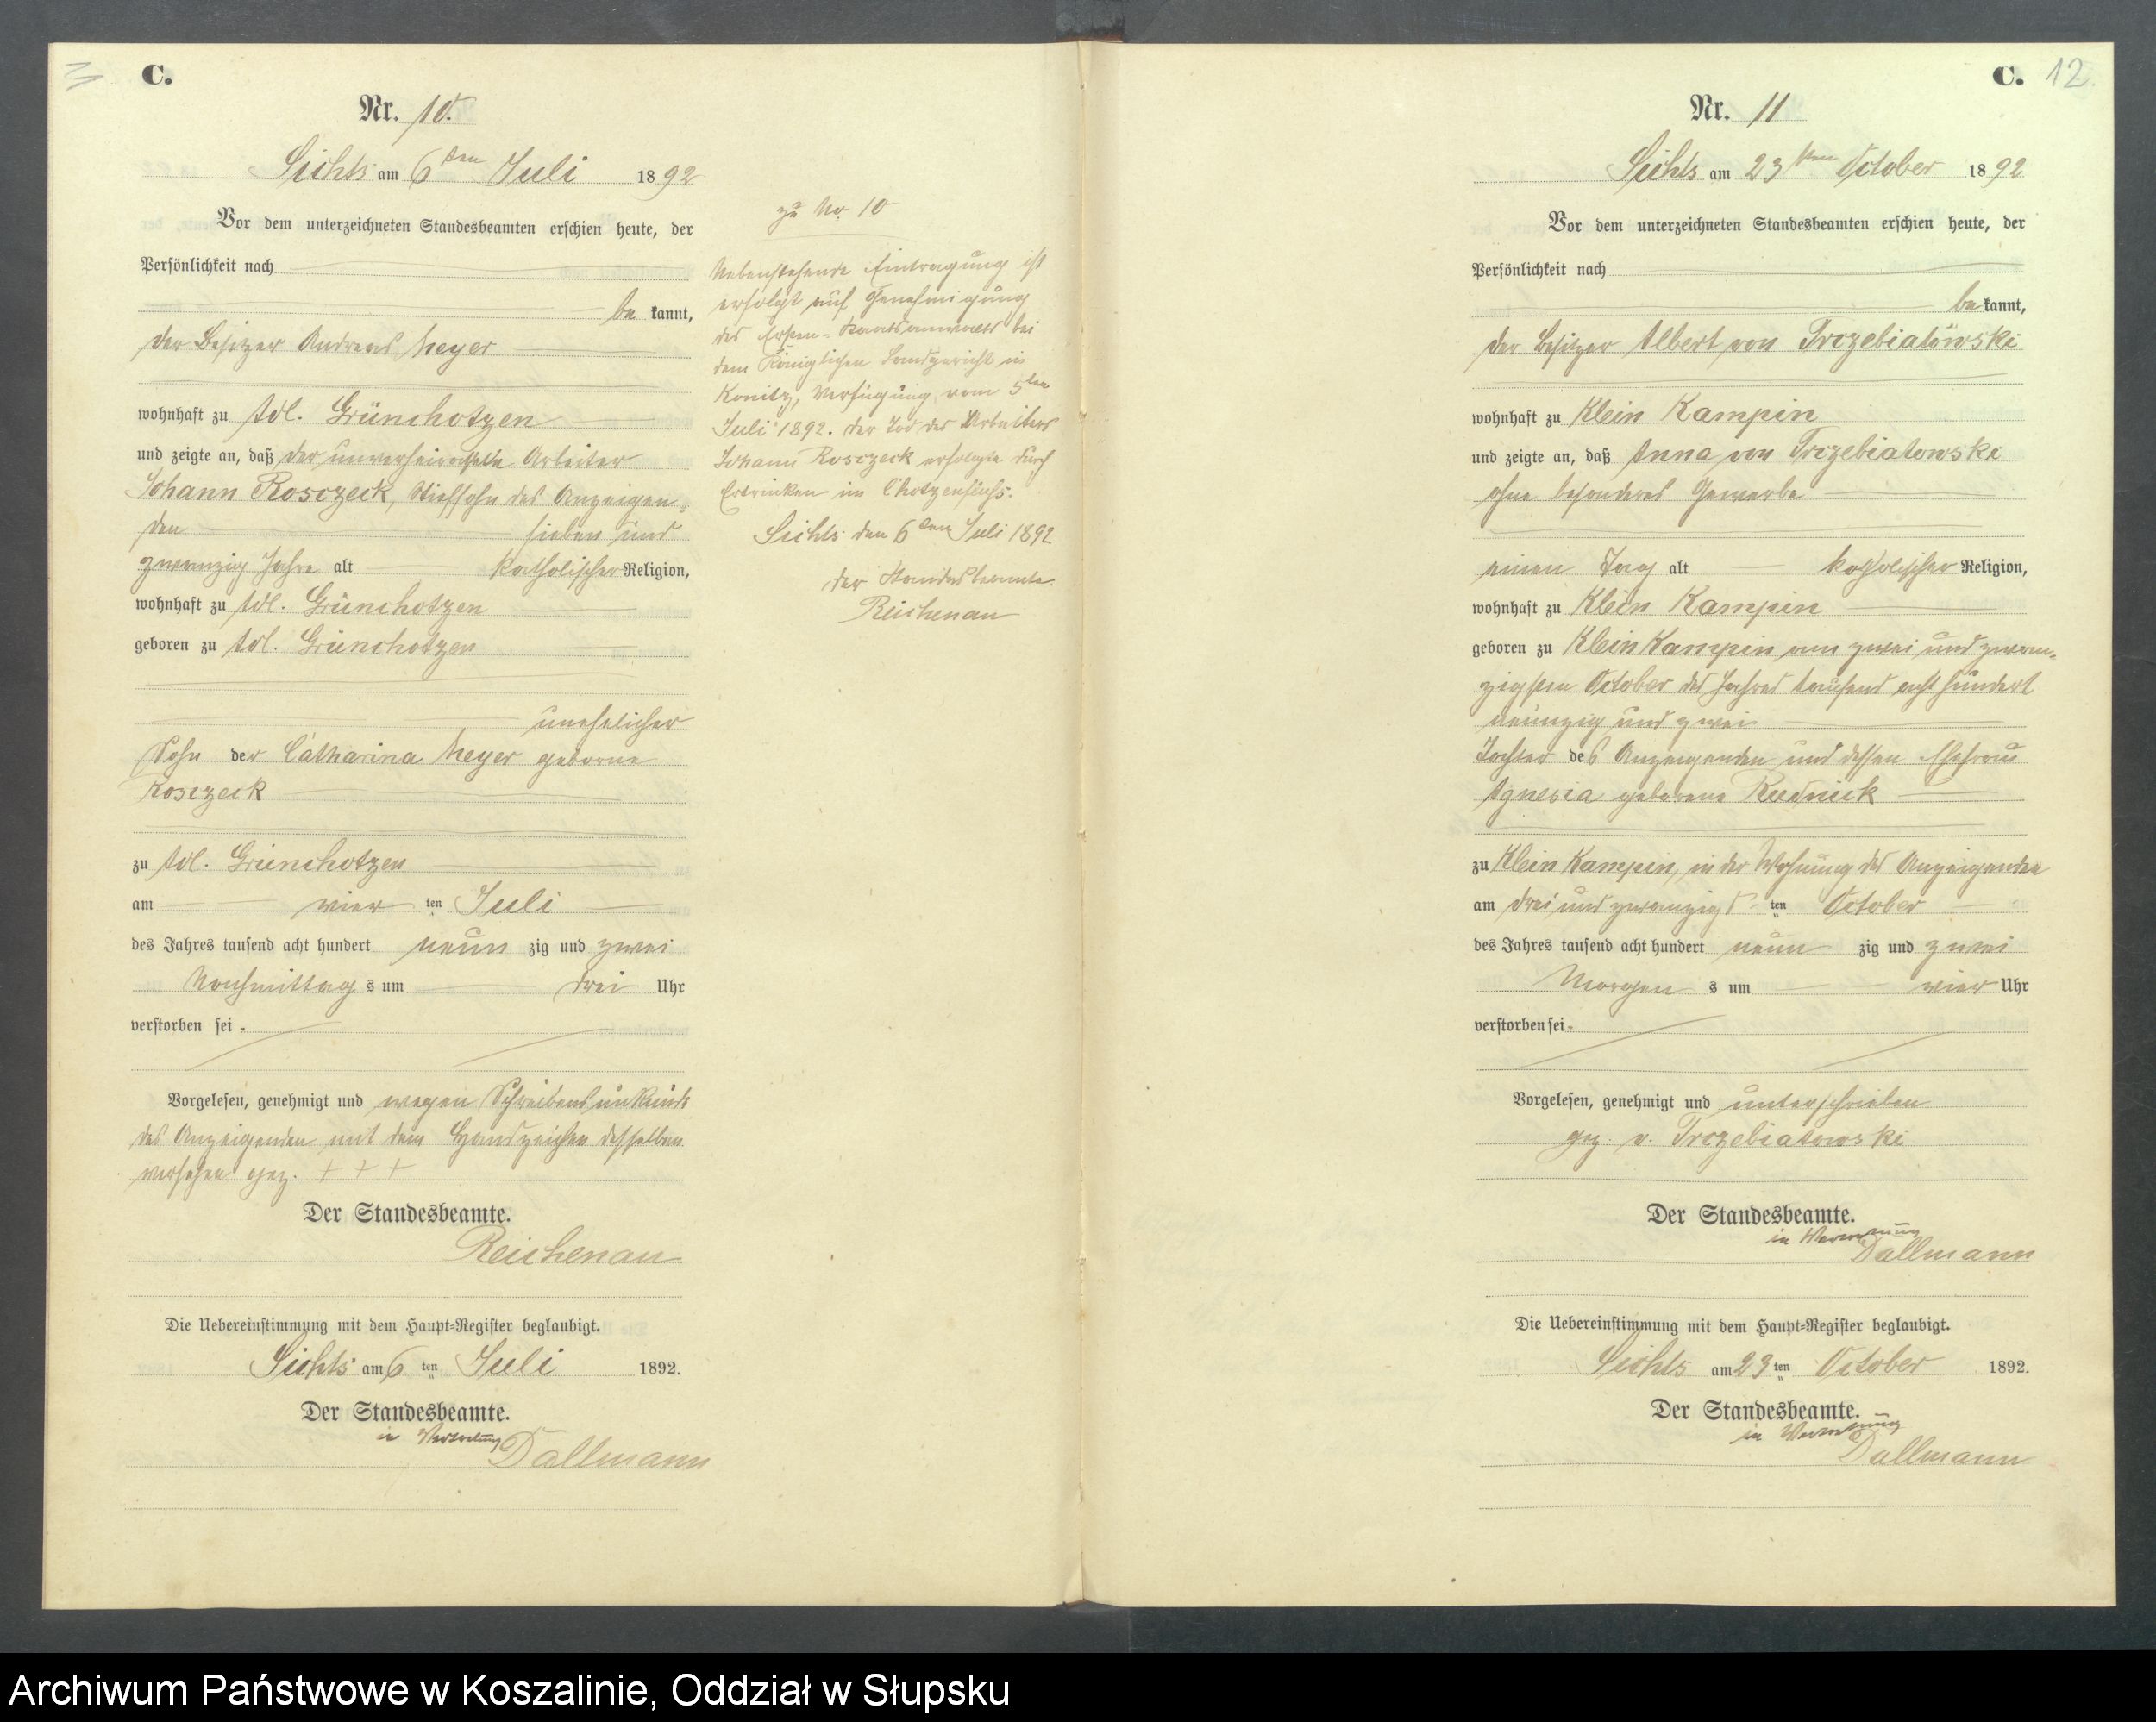 C.
Nr. 10.
Sichts am 6ten Juli 1892
Vor dem unterzeichneten Standesbeamten erschien heute, der
Persönlichkeit nach
be kannt,
der Besitzer Andreas Meyer
wohnhaft zu Adl. Grünchotzen
und zeigte an, daß der unverheirathete Arbeiter
Johann Rosczeck, Stiefsohn des Anzeigen-
den sieben und
zwanzig Jahre alt katholischer Religion,
wohnhaft zu Adl. Grünchotzen
geboren zu Adl. Grünchotzen
unehelicher
Sohn der Catharina Meyer geborne
Rosczeck
zu Adl. Grünchotzen
am vier ten Juli
des Jahres tausend acht hundert neun zig und zwei
Nachmittag s um drei Uhr
verstorben sei.
Vorgelesen, genehmigt und wegen Schreibensunkunde
des Anzeigenden mit dem Handzeichen desselben
versehen gez. + + +
Der Standesbeamte.
Reichenau
Die Uebereinstimmung mit dem Haupt-Register beglaubigt.
Sichts am 6 ten Juli 1892.
Der Standesbeamte.
in Vertretung
Dallmann
zu No. 10
Nebenstehende Eintragung ist
erfolgt auf Genehmigung
des Ersten Staatsanwalts bei
dem Königlichen Landgericht in
Konitz, Verfügung vom 5ten
Juli 1892. Der Tod des Arbeiters
Johann Rosczeck erfolgte durch
Ertrinken im Chotzenfluss.
Sichts den 6ten Juli 1892
Der Standesbeamte.
Reichenau
C. 12
Nr. 11
Sichts am 23ten October 1892
Vor dem unterzeichneten Standesbeamten erschien heute, der
Persönlichkeit nach
be kannt,
der Besitzer Albert von Trczebiatowski
wohnhaft zu Klein Kampin
und zeigte an, daß Anna von Trczebiatowski
ohne besonderes Gewerbe
einen Tag alt katholischer Religion,
wohnhaft zu Klein Kampin
geboren zu Klein Kampin am zwei und zwan-
zigsten October des Jahres tausend acht hundert
neunzig und zwei
Tochter des Anzeigenden und dessen Ehefrau
Agnesia geborene Rudnick
zu Klein Kampin, in der Wohnung des Anzeigenden
am drei und zwanzigs ten October
des Jahres tausend acht hundert neun zig und zwei
Morgen s um vier Uhr
verstorben sei.
Vorgelesen, genehmigt und unterschrieben
gez. v. Trczebiatowski
Der Standesbeamte.
in Vertretung
Dallmann
Die Uebereinstimmung mit dem Haupt-Register beglaubigt.
Sichts am 23 ten October 1892.
Der Standesbeamte.
in Vertretung
Dallmann
Archiwum Państwowe w Koszalinie, Oddział w Słupsku